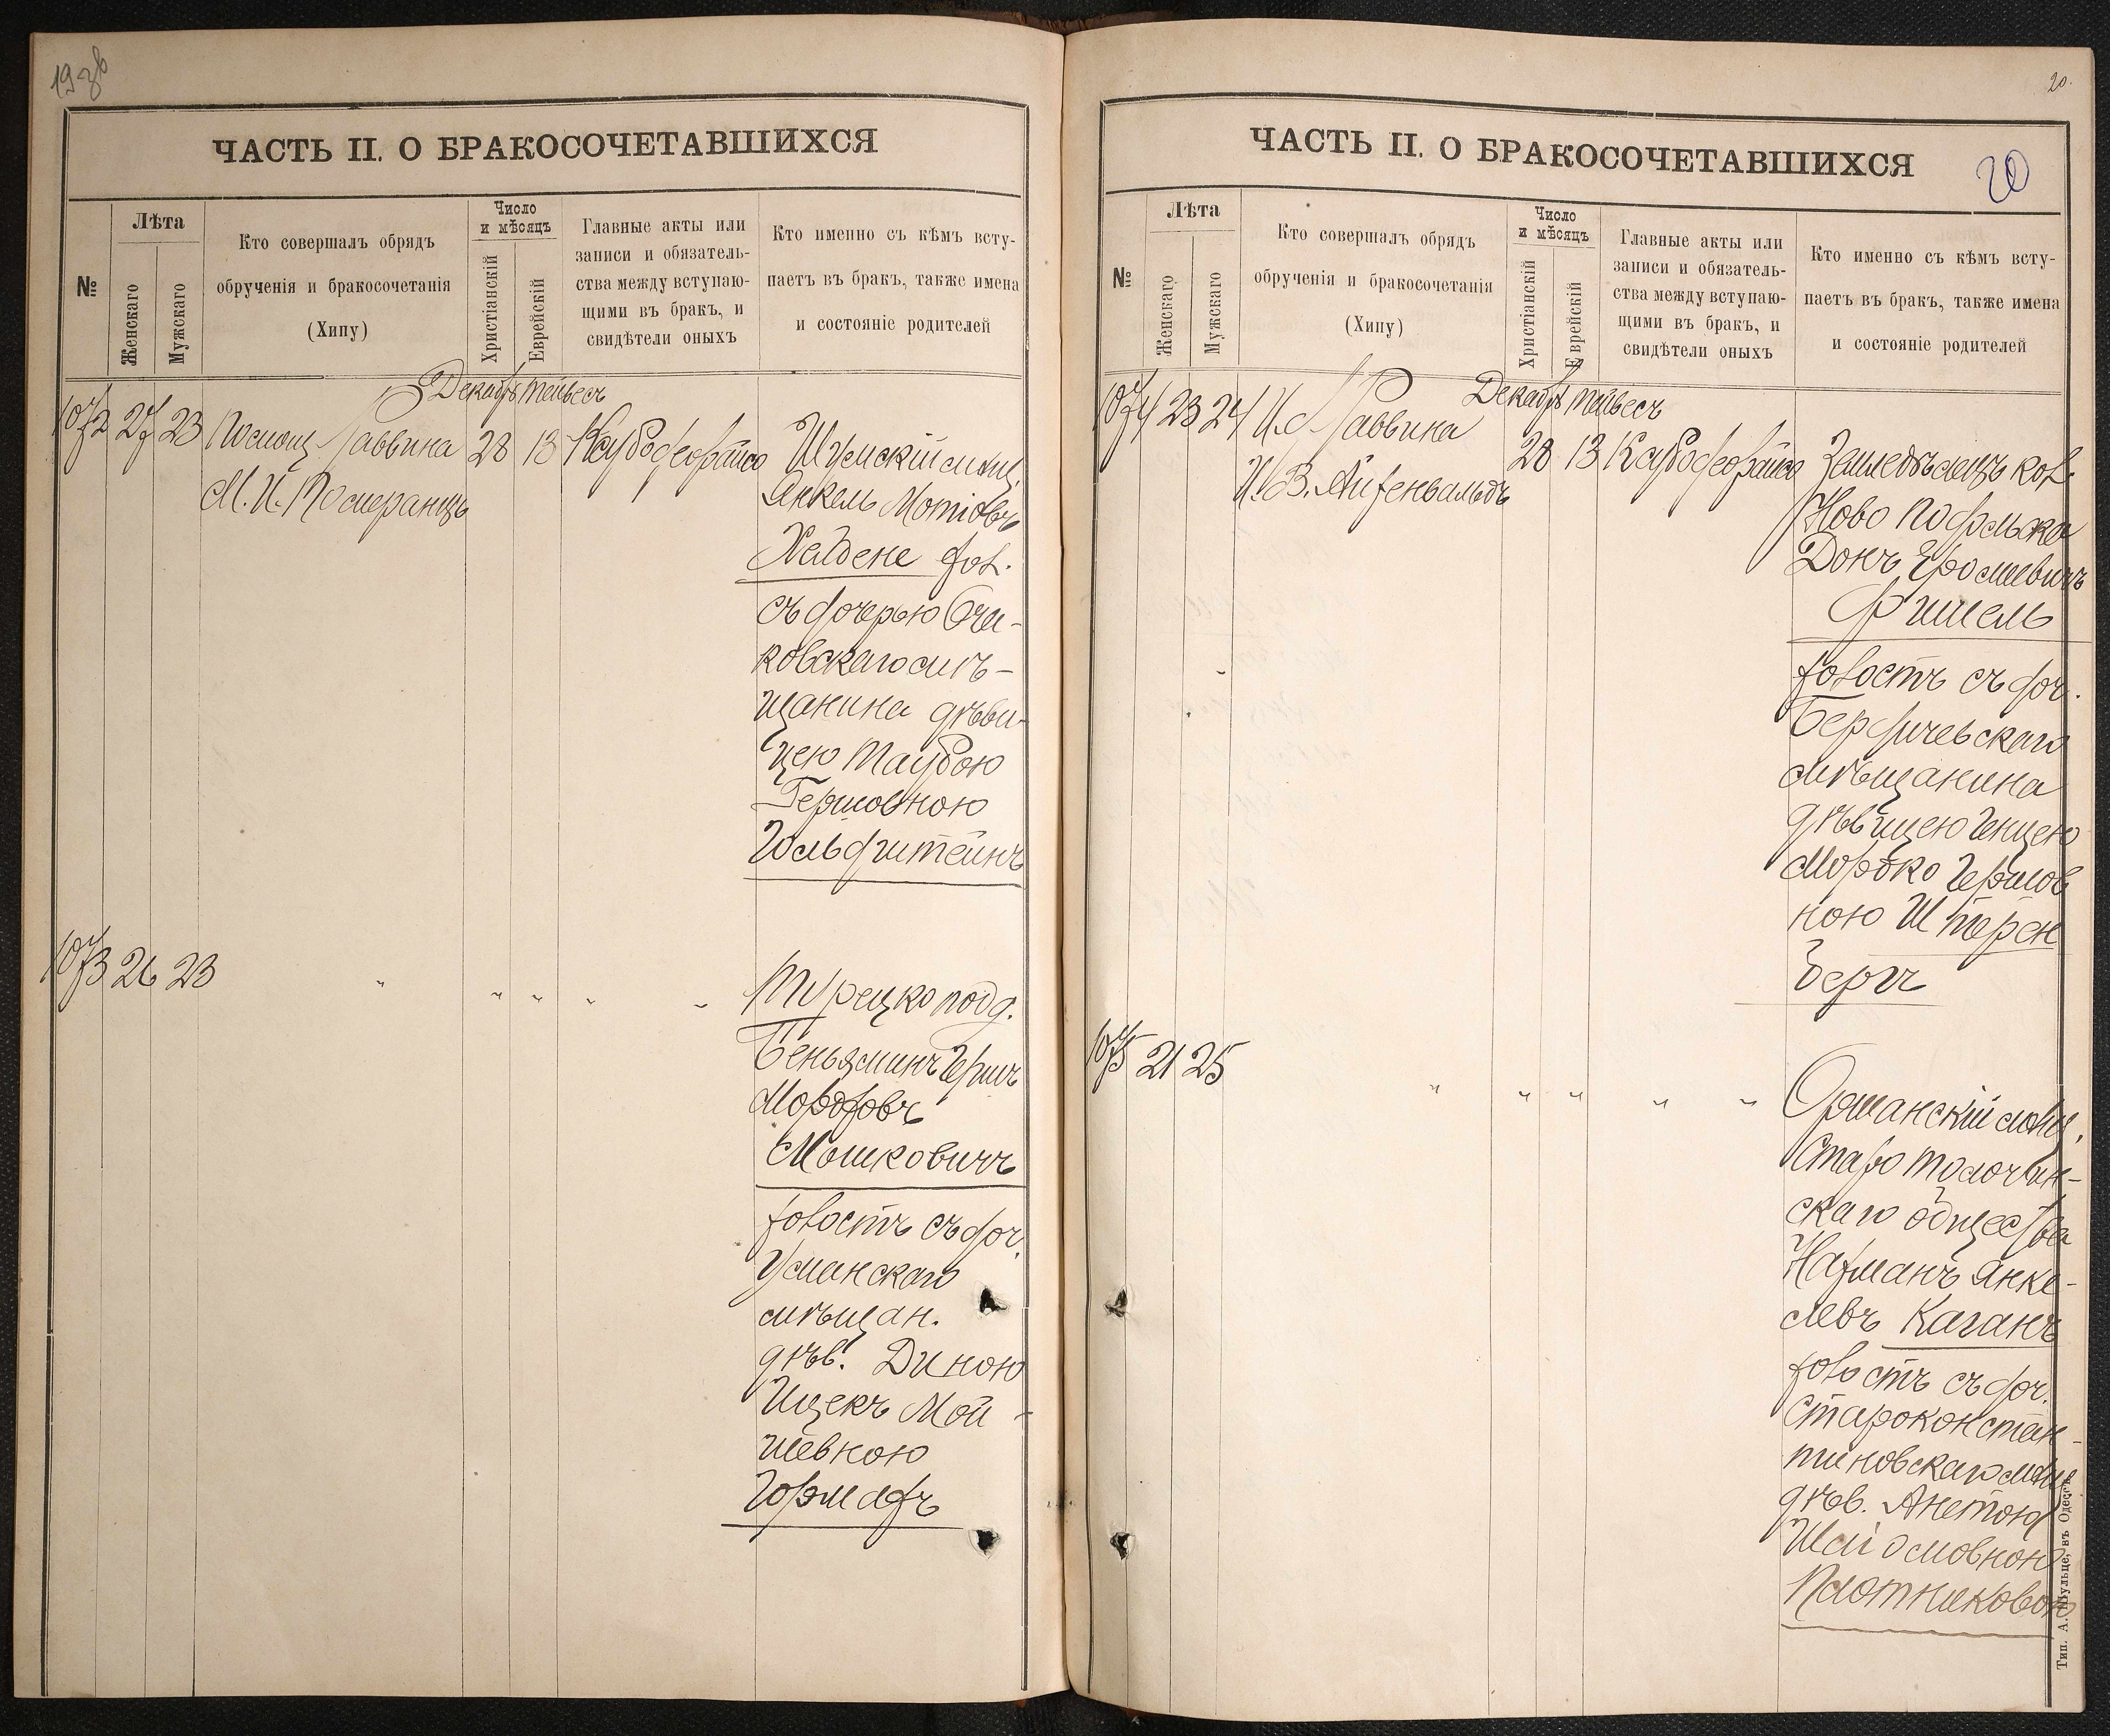 193б
ЧАСТЬ II. О БРАКОСОЧЕТАВШИХСЯ
№
Лѣта
Женскаго
Мужскаго
Кто совершалъ обрядъ
обрученія и бракосочетанія
(Хипу)
Число
и мѣсяцъ
Христіанскій
Еврейскій
Главные акты или
записи и обязатель-
ства между вступаю-
щими въ бракъ, и
свидѣтели оныхъ
Кто именно съ кѣмъ всту-
паетъ въ бракъ, также имена
и состояніе родителей
Декабрь Тейвесъ
1072 27 23 Помощ. Раввина 28 13
М. И. Померанцъ
Шумскій мѣщ.
Янкель Мотіовъ
Хелдене хол.
съ дочерью Оча-
ковскаго мѣ-
щанина дѣви-
цею Таубою
Гершовною
Гольдштейнъ
1073 26 23 " " " " "
Турецко подд.
Беньяминъ Гершъ
Мордховъ
Мошковичъ
холостъ съ доч.
Уманскаго
мѣщан.
дѣв. Диною
Ицекъ Мой-
шевною
Гормахъ
20.
20
ЧАСТЬ II. О БРАКОСОЧЕТАВШИХСЯ
№
Лѣта
Женскаго
Мужскаго
Кто совершалъ обрядъ
обрученія и бракосочетанія
(Хипу)
Число
и мѣсяцъ
Христіанскій
Еврейскій
Главные акты или
записи и обязатель-
ства между вступаю-
щими въ бракъ, и
свидѣтели оныхъ
Кто именно съ кѣмъ всту-
паетъ въ бракъ, также имена
и состояніе родителей
Декабрь Тейвесъ
1074 23 24 И. д. Раввина
И. В. Айхенвальдъ 28 13
Земледѣлецъ кол.
Ново Подольска
Донъ Сроліевичъ
Фишель
холостъ съ доч.
Бердичевскаго
мѣщанина
дѣвицею Генцею
Мордко Гершов
ною Штерен
бергъ
1075 21 25 " " " " "
Оршанскій мѣщ.
Старо Толочин-
скаго общества
Нахманъ Янке-
левъ Каганъ
холостъ съ доч.
Староконстан-
тиновскаго мѣщ.
дѣв. Анетою
Шаі
Плотниковою
Тип. А. Шульце, въ Одессѣ.